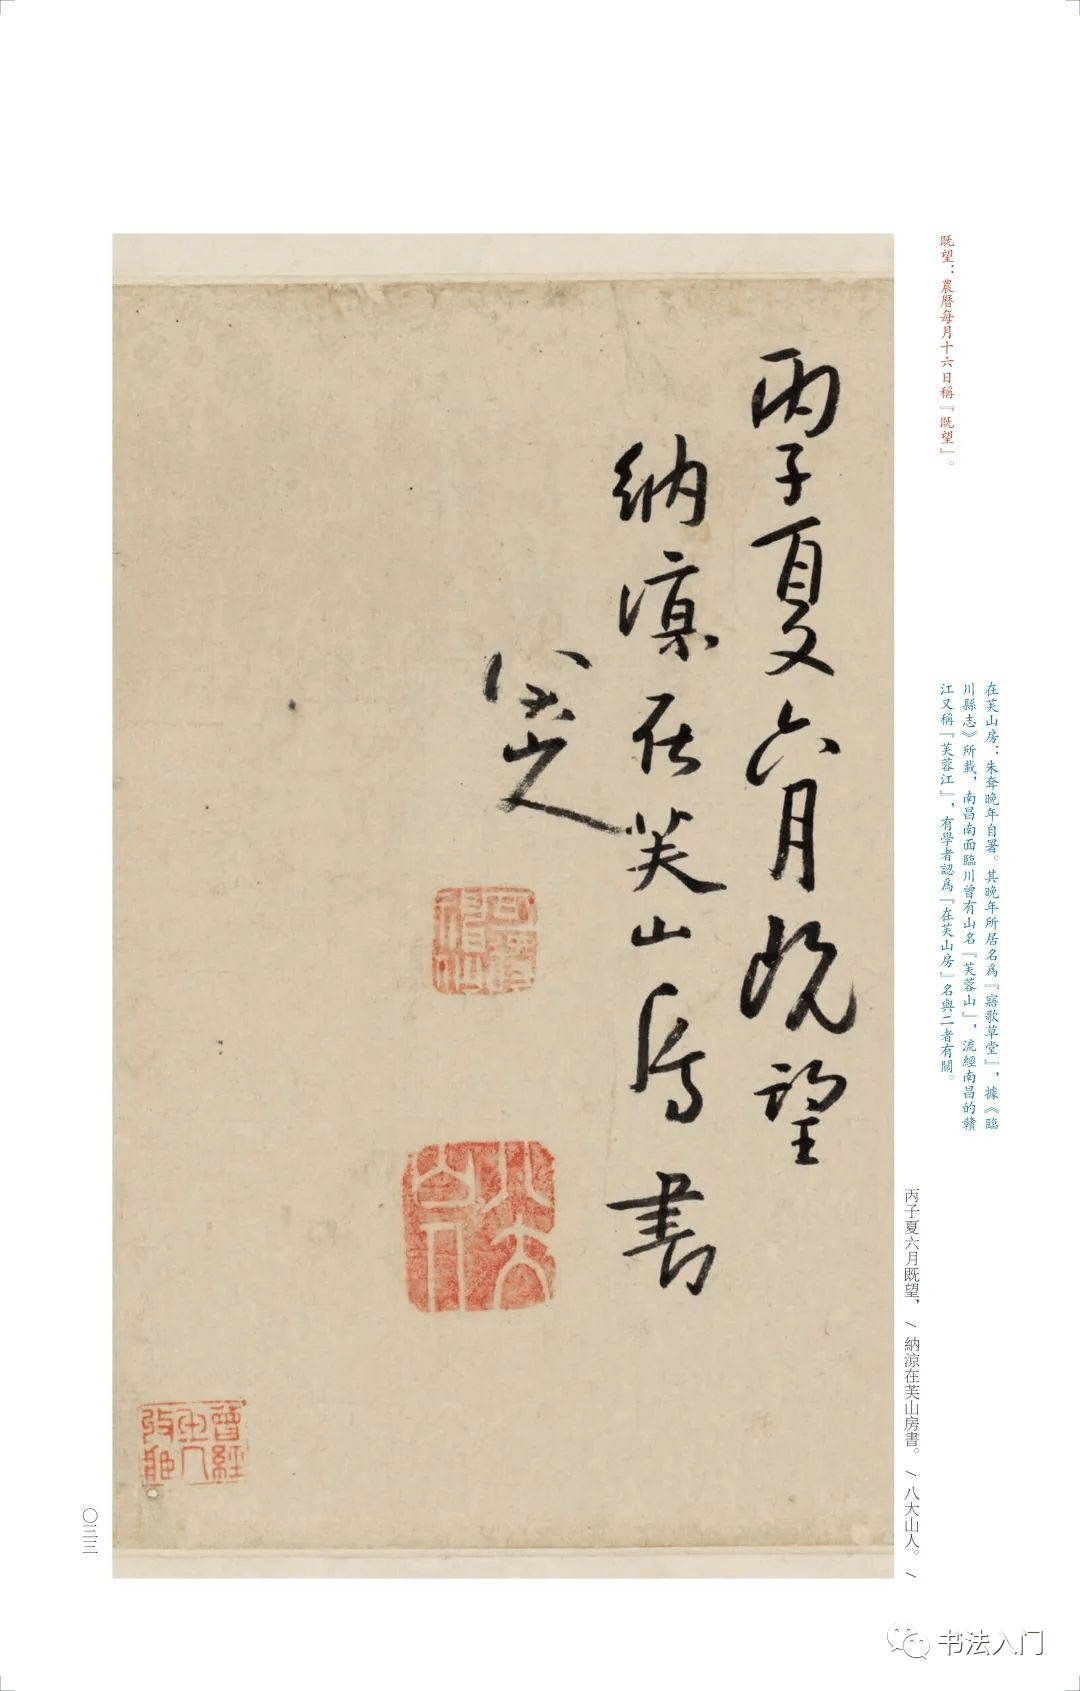 既望：農曆每月十六日稱『既望』。
在芙山房：朱耷晚年自署。其晚年所居名爲『寤歌草堂』，據《臨
川縣志》所載，南昌南面臨川曾有山名『芙蓉山』，流經南昌的贛
江又稱『芙蓉江』，有學者認爲『在芙山房』名與二者有關。
丙子夏六月既望，/納涼在芙山房書。/八大山人。/
丙子夏六月既望
納涼在芙山房書
八大山人
可得神仙
八大山人
〇三三
书法入门